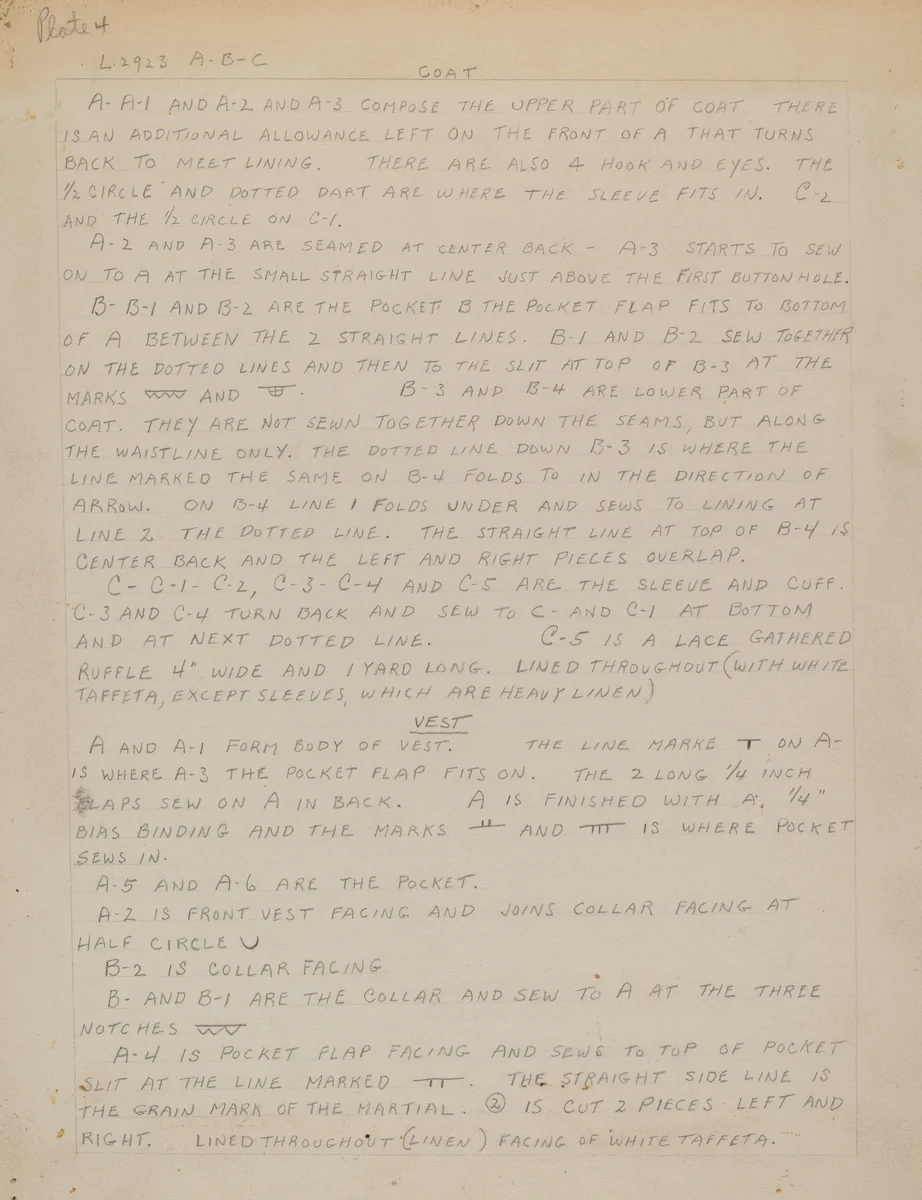 Plate 4
L.2923 A-B-C
COAT
A- A-1 AND A-2 AND A-3 COMPOSE THE UPPER PART OF COAT. THERE
IS AN ADDITIONAL ALLOWANCE LEFT ON THE FRONT OF A THAT TURNS
BACK TO MEET LINING. THERE ARE ALSO 4 HOOK AND EYES. THE
1/2 CIRCLE AND DOTTED DART ARE WHERE THE SLEEVE FITS IN. C-2
AND THE 1/2 CIRCLE ON C-1.
A-2 AND A-3 ARE SEAMED AT CENTER BACK - A-3 STARTS TO SEW
ON TO A AT THE SMALL STRAIGHT LINE JUST ABOVE THE FIRST BUTTON HOLE.
B- B-1 AND B-2 ARE THE POCKET B THE POCKET FLAP FITS TO BOTTOM
OF A BETWEEN THE 2 STRAIGHT LINES. B-1 AND B-2 SEW TOGETHER
ON THE DOTTED LINES AND THEN TO THE SLIT AT TOP OF B-3 AT THE
MARKS AND . B-3 AND B-4 ARE LOWER PART OF
COAT. THEY ARE NOT SEWN TOGETHER DOWN THE SEAMS, BUT ALONG
THE WAISTLINE ONLY. THE DOTTED LINE DOWN B-3 IS WHERE THE
LINE MARKED THE SAME ON B-4 FOLDS TO IN THE DIRECTION OF
ARROW. ON B-4 LINE 1 FOLDS UNDER AND SEWS TO LINING AT
LINE 2 THE DOTTED LINE. THE STRAIGHT LINE AT TOP OF B-4 IS
CENTER BACK AND THE LEFT AND RIGHT PIECES OVERLAP.
C- C-1- C-2, C-3- C-4 AND C-5 ARE THE SLEEVE AND CUFF.
C-3 AND C-4 TURN BACK AND SEW TO C- AND C-1 AT BOTTOM
AND AT NEXT DOTTED LINE. C-5 IS A LACE GATHERED
RUFFLE 4" WIDE AND 1 YARD LONG. LINED THROUGHOUT (WITH WHITE
TAFFETA, EXCEPT SLEEVES, WHICH ARE HEAVY LINEN)
VEST
A AND A-1 FORM BODY OF VEST. THE LINE MARKE T ON A-
IS WHERE A-3 THE POCKET FLAP FITS ON. THE 2 LONG 1/4 INCH
FLAPS SEW ON A IN BACK. A IS FINISHED WITH A, 1/4"
BIAS BINDING AND THE MARKS AND IS WHERE POCKET
SEWS IN.
A-5 AND A-6 ARE THE POCKET.
A-2 IS FRONT VEST FACING AND JOINS COLLAR FACING AT
HALF CIRCLE U
B-2 IS COLLAR FACING
B- AND B-1 ARE THE COLLAR AND SEW TO A AT THE THREE
NOTCHES
A-4 IS POCKET FLAP FACING AND SEWS TO TOP OF POCKET
SLIT AT THE LINE MARKED . THE STRAIGHT SIDE LINE IS
THE GRAIN MARK OF THE MARTIAL. ② IS CUT 2 PIECES LEFT AND
RIGHT. LINED THROUGHOUT (LINEN) FACING OF WHITE TAFFETA.